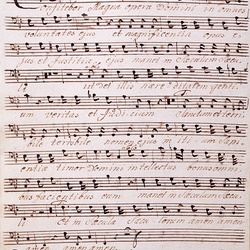 Confitebor Magna opera Domini in omnes
voluntates ejus et magnificentia opus e
jus et justitia ejus manet in Saeculum Saecu
li ut det illis haereditatem genti
um veritas et judicium
bile terribile nomen ejus initium Sapi
entia timor Domini intellectus bonus omni
bus facientibus eum manet in Saeculum Saecu
li et in Saecula Saeculorum amen amen
amen amen